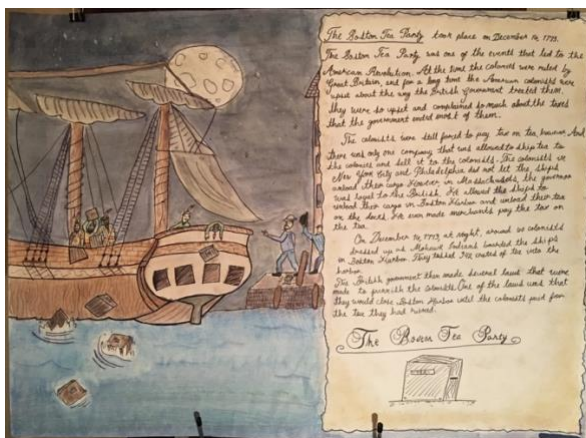 The Boston Tea Party took place on December 16, 1773.
The Boston Tea Party was one of the events that led to the
American Revolution. At the time the colonies were ruled by
Great Britain, and for a long time the American colonists were
upset about the way the British government treated them.
They were so upset and complained so much about the taxes
that the government ended most of them.
The colonists were still forced to pay tax on tea, And
there was only one company that was allowed to ship tea to
the colonies and sell it to the colonists. The colonists in
New York City and Philadelphia did not let the ships
unload their cargo However, in Massachusetts, the governor
was loyal to the British. He allowed the ships to
unload their cargo in Boston Harbor and unload their tea
on the dock. He even made merchants pay the tax on
the tea.
On December 16, 1773, at night, around colonists
dressed up as Mohawk Indians boarded the ships
in Boston Harbor. They crates of tea into the
harbor.
The British government then made several laws that were
made to punish the colonists. One of the laws was that
they would close Boston Harbor until the colonists paid for
the tea they had ruined.
The Boston Tea Party